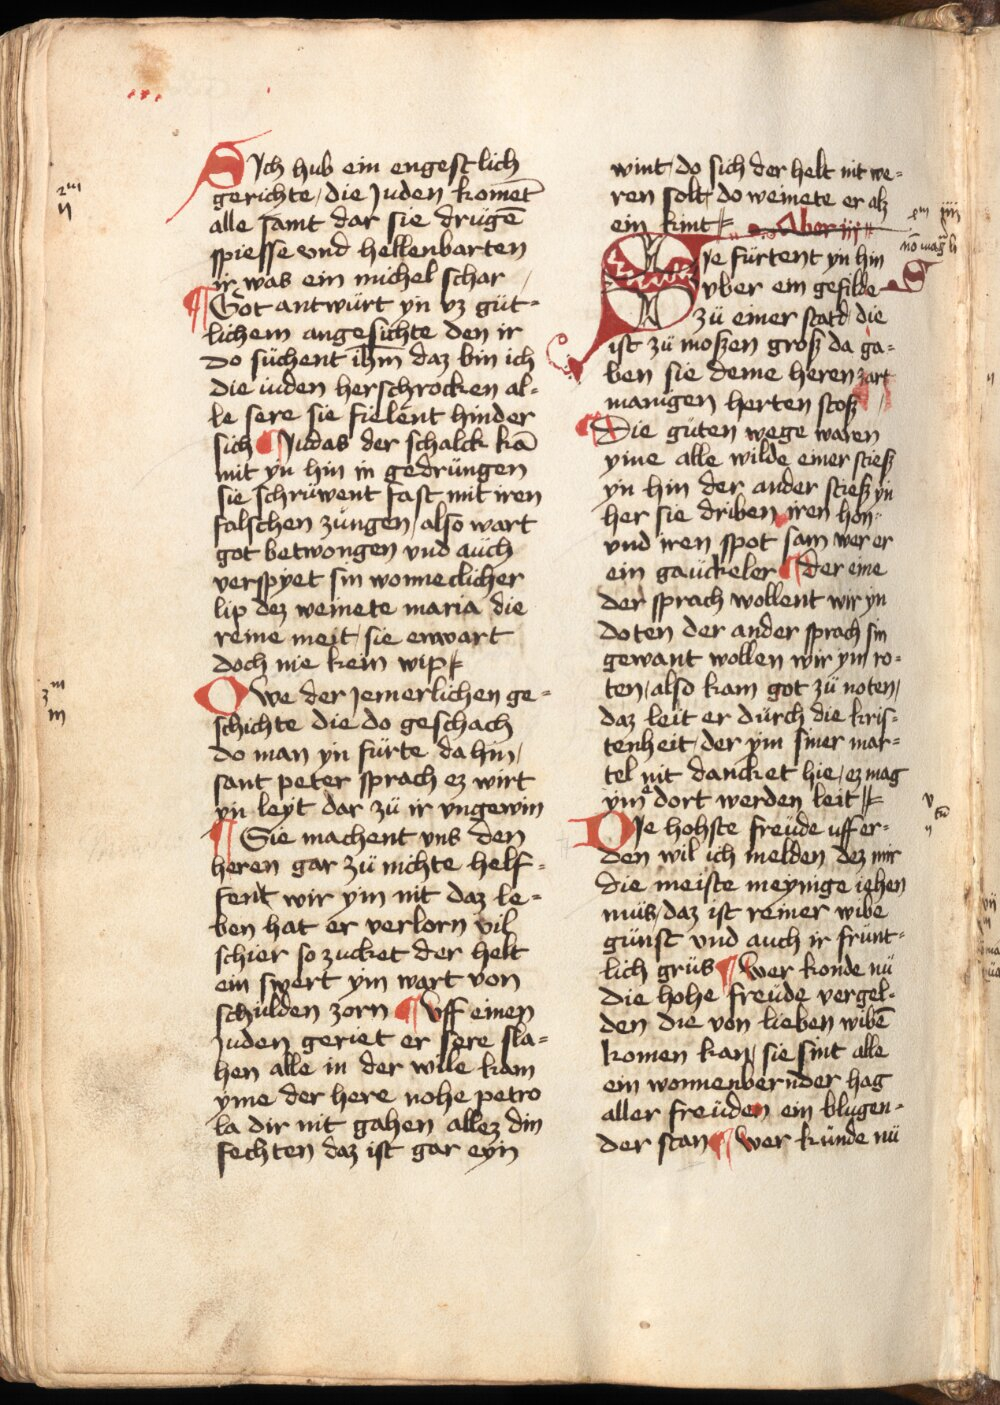 SIch hub ein engestlich
gerichte / die Juden komēt
alle samt dar sie drügē
spiesse vnd hellenbarten
ir was ein michel schar
Got antwürt yn vz güt-
lichem angesichte den ir
do süchent ihm daz bin ich
die iuden herschrocken al-
le sere sie fielent hinder
sich Judas der schalck kā
mit yn hin in gedrüngen
sie schrüwent fast mit iren
falschen züngen / also wart
got betwongen vnd aüch
verspyet sin wonneclicher
lip dez weinete maria die
reine meit / sie erwart
doch nie kein wip
OWe der Jemerlichen ge-
schichte die do geschach
do man yn fürte da hin /
sant peter sprach ez wirt
yn leyt dar zü ir vngewin
Sie machent vns den
heren gar zü nichte helf-
fent wir ym nit daz le-
ben hat er verlorn vil
schier so zucket der helt
ein swert ym wart von
schulden zorn vff einen
Juden geriet er sere sla-
hen alle in der wile kam
yme der here nohe petro
la dir nit gahen allez din
fechten daz ist gar eyn
wint / do sich der helt nit we-
ren solt do weinete er alz
ein kint
Aber iij
DIe fürtent yn hin
vber ein gefilde
zü einer stad die
ist zü moßen groß da ga-
ben sie deme heren zart
manigen herten stoß
Die güten wege waren
yme alle wilde einer stieß
yn hin der ander stieß yn
her sie driben iren hon
vnd iren spot sam wer er
ein gaückeler der eine
der sprach wollent wir yn
doten der ander sprach sin
gewant wollen wir ym ro-
ten / also kam got zü noten /
daz leit er dürch die kris-
tenheit / der ym siner mar-
tel nit dancket hie / ez mag
ym dort werden leit
DIe hohste freüde vff er-
den wil ich melden dez mir
die meiste meynige iehen
müs / daz ist reiner wibe
günst vnd auch ir frünt-
lich grüs wer konde nü
die hohe freüde vergel-
den die von lieben wibē
komen kan / sie sint alle
ein wonnenbernder hag
aller freüden ein blugen-
der stan wer künde nü